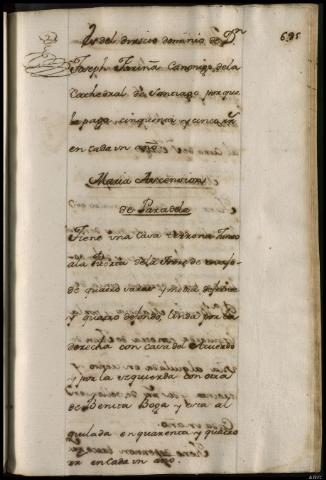 Es del directo dominio de Dn
695
Joseph Fariña Canonigo dela
Cathedral de Santiago porque
le paga cinquenta y cinco rs
en cada un año
Maria Ascension
de Paradela
Tiene una Casa terrena
ala Puerta dela Torre de
de quatro varas y media de frente
y quatro de fondo, linda por la
derecha con casa del Acuerdo
y por la yzquierda con otra
de Benita Boga y esta al
quilada en quarenta y quatro
rs en cada un año.